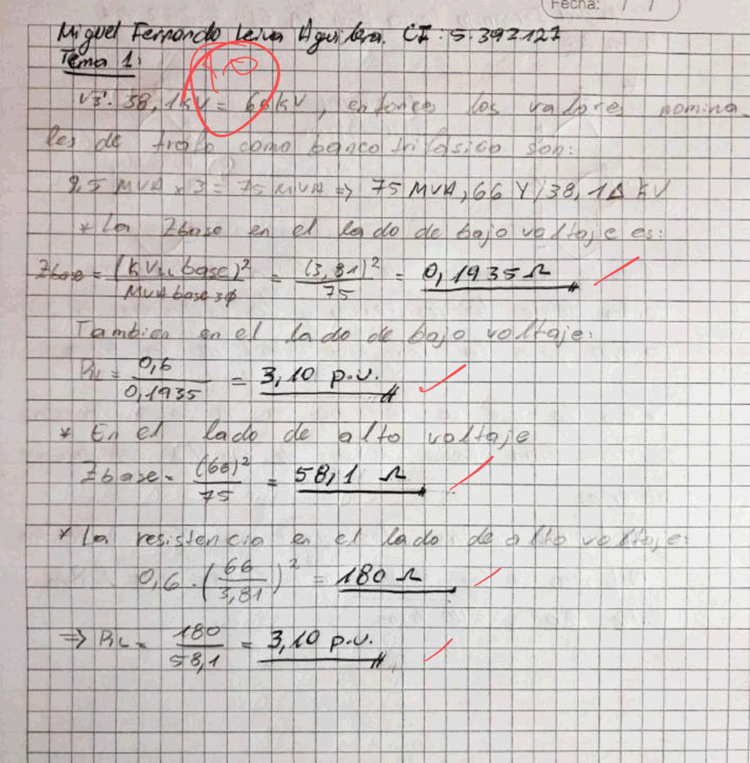 Fecha: / /
Miguel Fernando Leiva Aguilera. CI: 5.392127
Tema 1:
10
√3 . 38,1kV = 66kV, entonces los valores nomina-
les de trafo como banco trifásico son:
2,5 MVA x 3 = 75 MVA => 75 MVA, 66 Y/38,1Δ KV
* La Zbase en el lado de bajo voltaje es:
Zbase = (KVLL base)² / MVA base 3ϕ = (3,81)² / 75 = 0,1935 Ω
Tambien en el lado de bajo voltaje:
RL = 0,6 / 0,1935 = 3,10 p.u.
* En el lado de alto voltaje
Zbase = (66)² / 75 = 58,1 Ω
* La resistencia en el lado de alto voltaje:
0,6 . (66 / 3,81)² = 180 Ω
=> RL = 180 / 58,1 = 3,10 p.u.